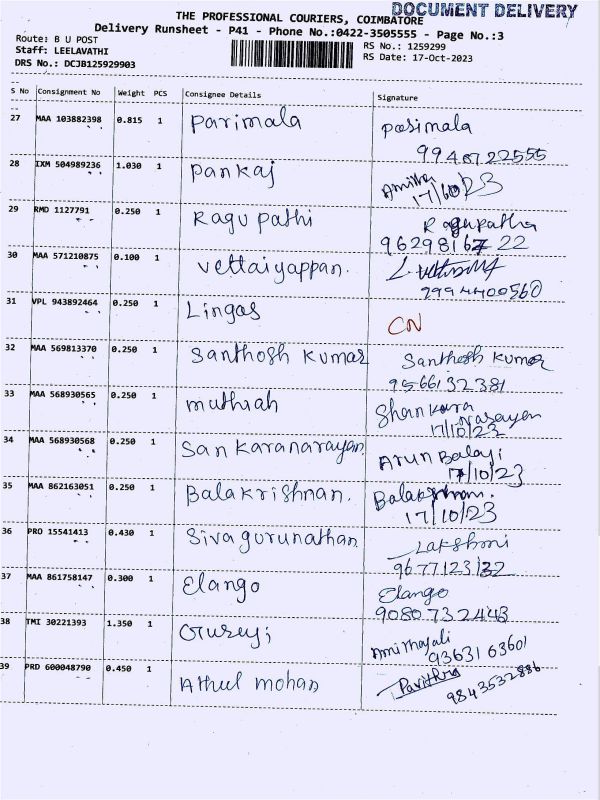 DOCUMENT DELIVERY
THE PROFESSIONAL COURIERS, COIMBATORE
Delivery Runsheet - P41 - Phone No.:0422-3505555 - Page No.:3
Route: B U POST
RS No.: 1259299
Staff: LEELAVATHI
RS Date: 17-Oct-2023
DRS No.: DCJB125929903
S No Consignment No Weight PCS Consignee Details Signature
27 MAA 103882398 0.815 1 Parimala Parimala
99407 22555
28 IXM 504989236 1.030 1 Pankaj
29 RMD 1127791 0.250 1 Ragu pathi Ragupatha
9629816722
30 MAA 571210875 0.100 1 Vettaiyappan.
9994400560
31 VPL 943892464 0.250 1 Lingas CN
32 MAA 569813370 0.250 1 Santhosh Kumar Santhosh Kumar
9566132381
33 MAA 568930565 0.250 1 muthiah Shankara
Narayan
17/10/23
34 MAA 568930568 0.250 1 Sankaranarayan Arun Balaji
17/10/23
35 MAA 862163051 0.250 1 Balakrishnan.
17/10/23
36 PRO 15541413 0.430 1 Sivagurunathan Lakshmi
9677123132
37 MAA 861758147 0.300 1 Elango Elango
9080732443
38 TMI 30221393 1.350 1
93631 63601
39 PRD 600048790 0.450 1 Athul mohan Pavithra
9843532886